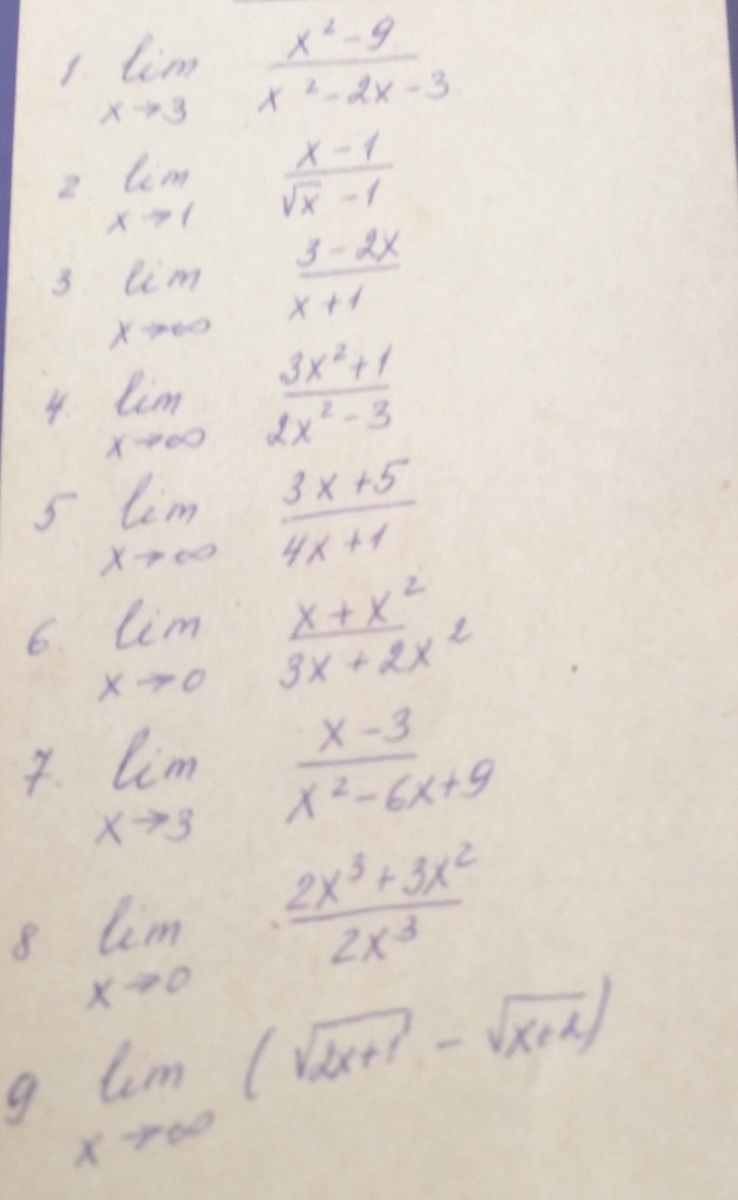 1 lim x→3 (x² - 9)/(x² - 2x - 3)
2 lim x→1 (x - 1)/(√x - 1)
3 lim x→∞ (3 - 2x)/(x + 1)
4. lim x→∞ (3x² + 1)/(2x² - 3)
5 lim x→∞ (3x + 5)/(4x + 1)
6. lim x→0 (x + x²)/(3x + 2x²)
7. lim x→3 (x - 3)/(x² - 6x + 9)
8 lim x→0 (2x³ + 3x²)/(2x³)
9 lim x→∞ (√(2x+1) - √(x+2))